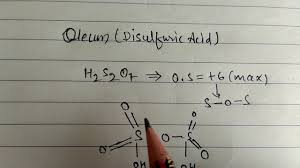 Oleum (Disulfuric Acid)
H₂S₂O₇ ⇒ O.S = +6 (max)
S-O-S
O O
O S O S O
OH OH